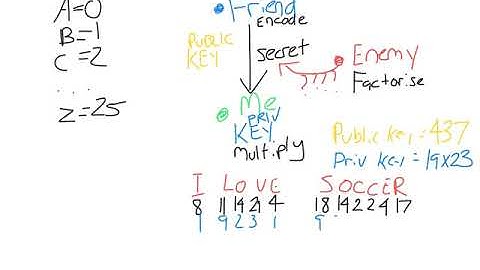 A=0
B=1
C=2
....
Z=25
Friend
Encode
PUBLIC
KEY
secret
Enemy
????
Factorise
Me
PRIV
KEY
multiply
Public key = 437
Priv Key = 19x23
I LOVE SOCCER
8 11 14 21 4 18 14 2 2 4 17
1 9 2 3 1 9